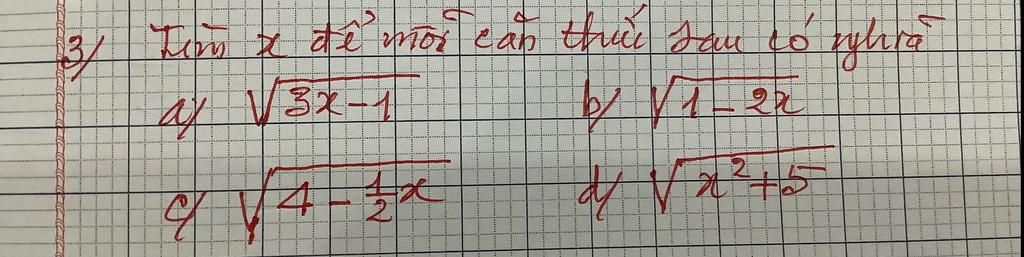 3) Tìm x để mỗi căn thức sau có nghĩa
a) √(3x-1) b) √(1-2x)
c) √(4-1/2x) d) √(x²+5)